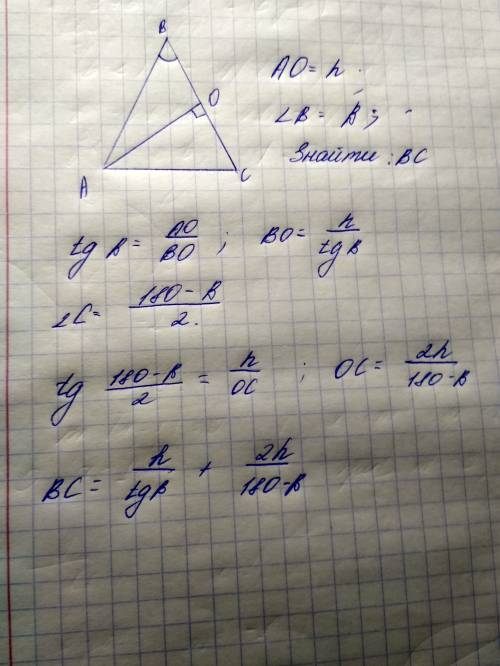 B
O
A
C
AO = h
∠B = β;
Знайти: BC
tg β = AO/BO; BO = h/tgβ
∠C = 180-β/2.
tg 180-β/2 = h/OC; OC = 2h/180-β
BC = h/tgβ + 2h/180-β